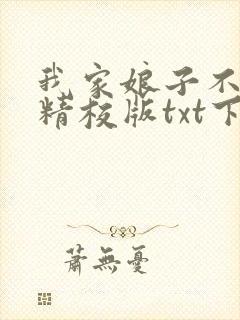 我家娘子不
精校版txt下
蕭無憂